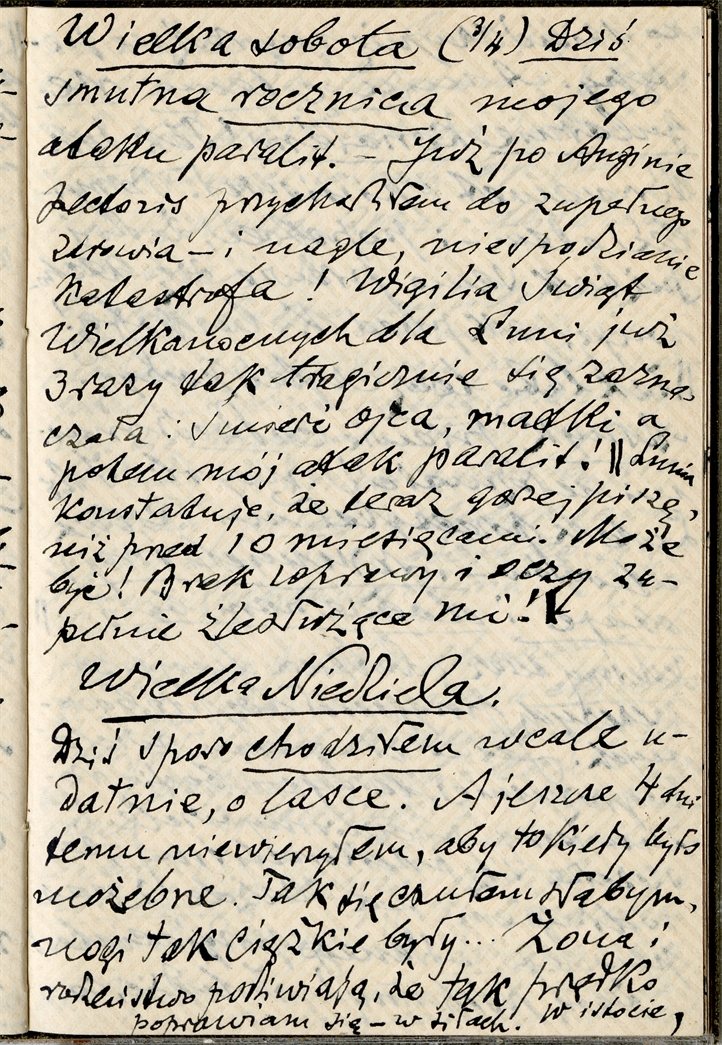 Wielka sobota (3/4) Dziś
smutna rocznica mojego
ataku paralit. – Już po Anginie
pectoris przychodziłem do zupełnego
zdrowia – i nagle, niespodzianie
katastrofa! Wigilia Świąt
Wielkanocnych dla Luni już
3 razy tak tragicznie się zazna-
czała: śmierć ojca, matki a
potem mój atak paralit.! || Lunia
konstatuje, że teraz gorzej piszę,
niż przed 10 miesiącami. Może
być! Brak wprawy i oczy zu-
pełnie źle służące mi!
Wielka Niedziela.
Dziś sporo chodziłem wcale u-
datnie, o lasce. A jeszcze 4 dni
temu niewierzyłem, aby to kiedy było
możebne. Tak się czułem słabym,
nogi tak ciężkie były... Żona i
rodzeństwo podziwiają, że tak prędko
poprawiam się – w siłach. W istocie,